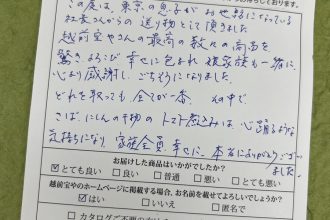 この度は、東京の息子がお世話になっている
社長さんからの送り物として頂きました
越前宝やさんの最高の数々の商品を
驚き、よろこび 幸せに包まれ 親家族も一緒に
心より感謝し、ごちそうになりました。
どれを取っても 全てが一番、その中で
さば、にしんの干物の トマト煮込みは、心踊るような
気持ちになり、家族全員 幸せに、本当にありがとうござい
ました。
お届けした商品はいかがでしたか?
☑とても良い □良い □普通 □悪い □とても悪い
越前宝やのホームページに掲載する場合、お名前を載せてよろしいでしょうか?
☑はい □いいえ □匿名で
□カタログご不要の方は